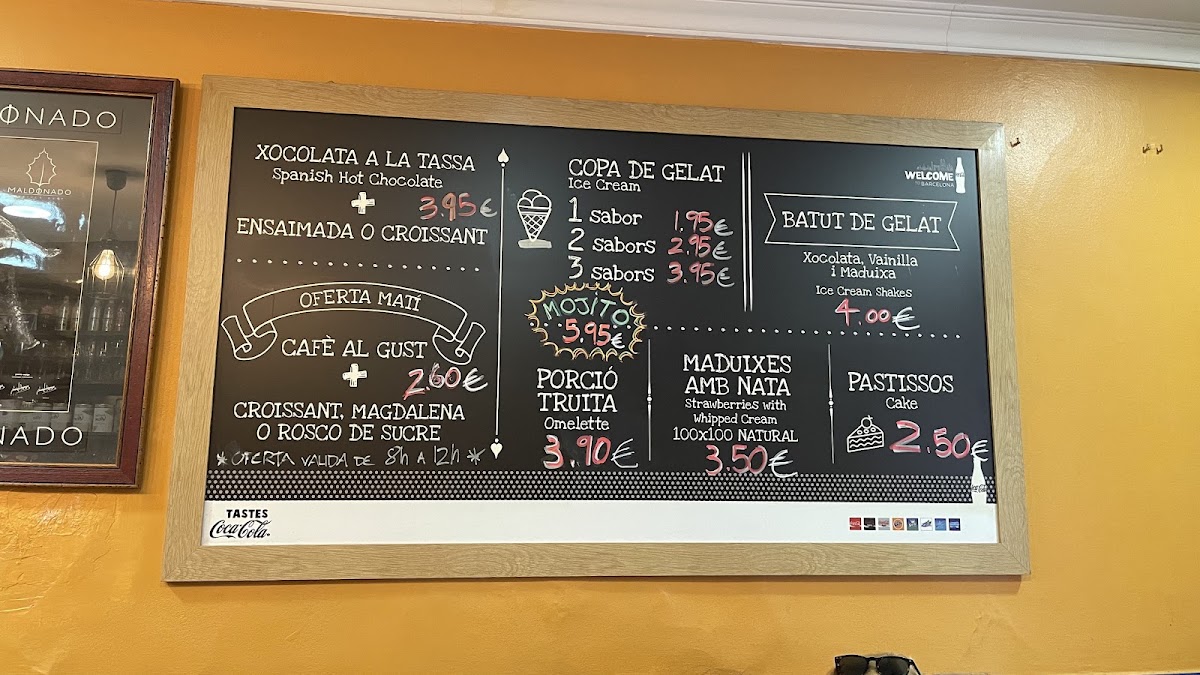 ØNADO
MALDONADO
NADO
XOCOLATA A LA TASSA
Spanish Hot Chocolate
+ 3.95€
ENSAIMADA O CROISSANT
OFERTA MATÍ
CAFÈ AL GUST
+ 2.60€
CROISSANT, MAGDALENA
O ROSCO DE SUCRE
*OFERTA VALIDA DE 8h A 12h*
COPA DE GELAT
Ice Cream
1 sabor 1.95€
2 sabors 2.95€
3 sabors 3.95€
MOJITO
5.95€
WELCOME
TO BARCELONA
BATUT DE GELAT
Xocolata, Vainilla
i Maduixa
Ice Cream Shakes
4.00€
PORCIÓ
TRUITA
Omelette
3.90€
MADUIXES
AMB NATA
Strawberries with
Whipped Cream
100x100 NATURAL
3.50€
PASTISSOS
Cake
2.50€
TASTES
Coca-Cola